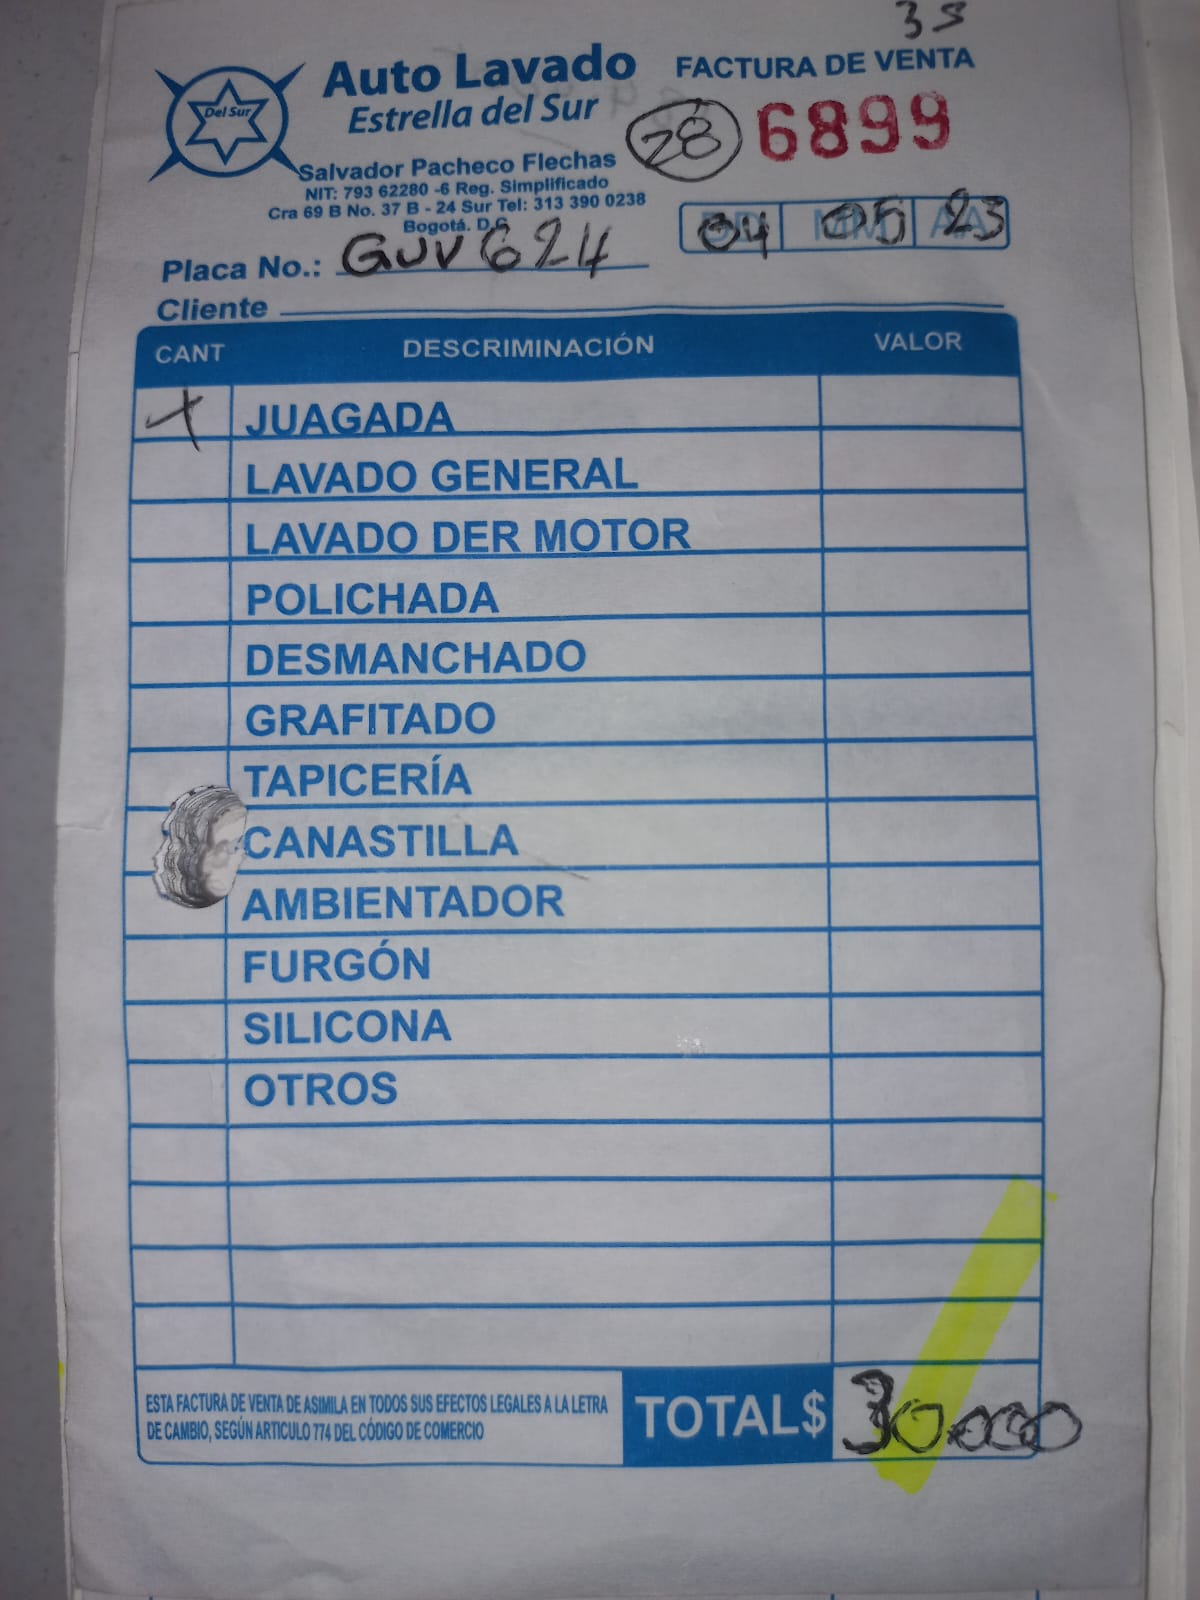 35
Auto Lavado
Estrella del Sur
Del Sur
FACTURA DE VENTA
28
6899
Salvador Pacheco Flechas
NIT: 793 62280 -6 Reg. Simplificado
Cra 69 B No. 37 B - 24 Sur Tel: 313 390 0238
Bogotá. D.C
04 05 23
Placa No.: GUV624
Cliente
CANT DESCRIMINACIÓN VALOR
X JUAGADA
LAVADO GENERAL
LAVADO DER MOTOR
POLICHADA
DESMANCHADO
GRAFITADO
TAPICERÍA
CANASTILLA
AMBIENTADOR
FURGÓN
SILICONA
OTROS
ESTA FACTURA DE VENTA DE ASIMILA EN TODOS SUS EFECTOS LEGALES A LA LETRA
DE CAMBIO, SEGÚN ARTICULO 774 DEL CÓDIGO DE COMERCIO
TOTAL$ 30.000